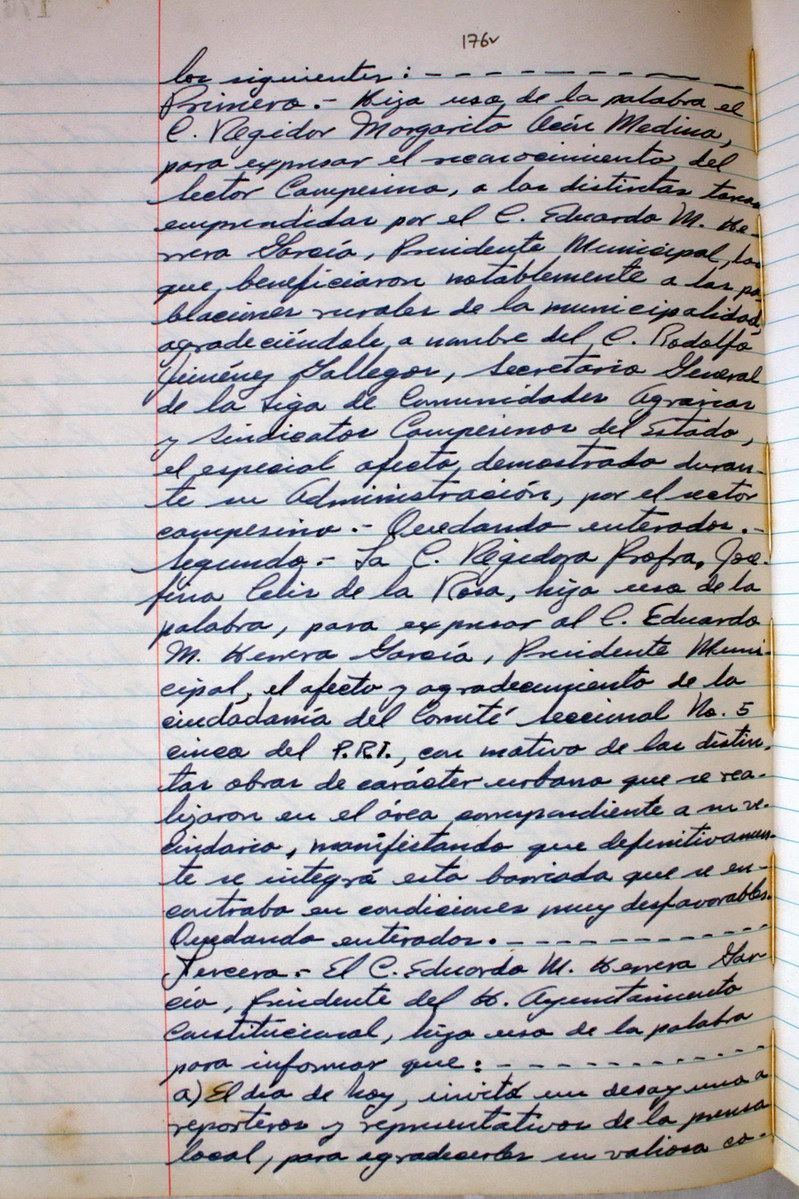 176v
los siguientes: - - - - - - - - - - -
Primero.- Hizo uso de la palabra el
C. Regidor Margarito Medina,
para expresar el reconocimiento del
Sector Campesino, a las distintas tareas
emprendidas por el C. Eduardo M. He-
rrera García, Presidente Municipal, las
que beneficiaron notablemente a las po-
blaciones rurales de la municipalidad,
agradeciéndole a nombre del C. Rodolfo
Jiménez Gallegos, Secretario General
de la Liga de Comunidades Agrarias
y Sindicatos Campesinos del Estado,
el especial afecto demostrado duran-
te su Administración, por el sector
campesino.- Quedando enterados.-
Segundo.- La C. Regidora Profra. Jose-
fina Celis de la Rosa, hizo uso de la
palabra, para expresar al C. Eduardo
M. Herrera García, Presidente Muni-
cipal, el afecto y agradecimiento de la
ciudadanía del Comité Seccional No. 5
cinco del P.R.I., con motivo de las distin-
tas obras de carácter urbano que se rea-
lizaron en el área correspondiente a su ve-
cindario, manifestando que definitivamen-
te se integrá esta barriada que se en-
contraba en condiciones muy desfavorables.
Quedando enterados. - - - - - - - - -
Tercero.- El C. Eduardo M. Herrera Gar
cía, Presidente del H. Ayuntamiento
Constitucional, hizo uso de la palabra
para informar que: - - - - - - - - - -
a) El día de hoy, invitó un desayuno a
reporteros y representativos de la prensa
local, para agradecerles su valiosa co-